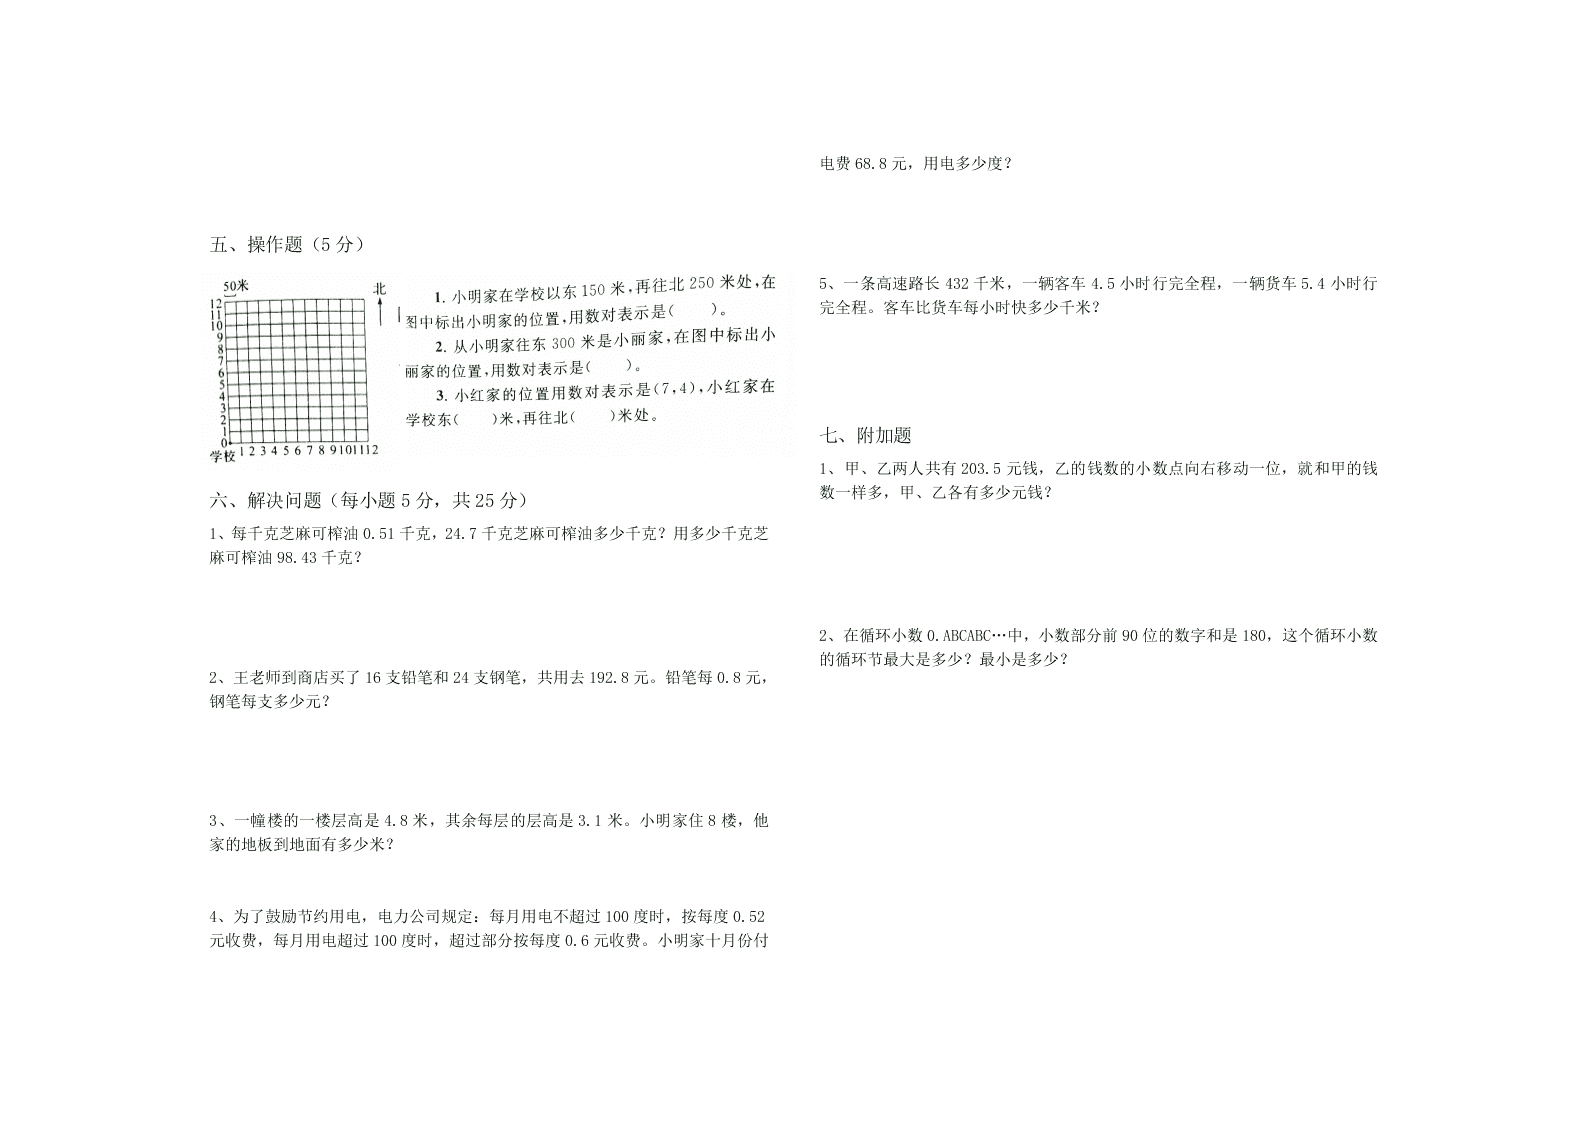 五、操作题（5 分）
50米
北
12
11
10
9
8
7
6
5
4
3
2
1
0
学校 1 2 3 4 5 6 7 8 9 10 11 12
1. 小明家在学校以东 150 米,再往北 250 米处,在
图中标出小明家的位置,用数对表示是(　　)。
2. 从小明家往东 300 米是小丽家,在图中标出小
丽家的位置,用数对表示是(　　)。
3. 小红家的位置用数对表示是(7,4),小红家在
学校东(　　)米,再往北(　　)米处。
六、解决问题（每小题 5 分，共 25 分）
1、每千克芝麻可榨油 0.51 千克，24.7 千克芝麻可榨油多少千克？用多少千克芝
麻可榨油 98.43 千克？
2、王老师到商店买了 16 支铅笔和 24 支钢笔，共用去 192.8 元。铅笔每 0.8 元，
钢笔每支多少元？
3、一幢楼的一楼层高是 4.8 米，其余每层的层高是 3.1 米。小明家住 8 楼，他
家的地板到地面有多少米？
4、为了鼓励节约用电，电力公司规定：每月用电不超过 100 度时，按每度 0.52
元收费，每月用电超过 100 度时，超过部分按每度 0.6 元收费。小明家十月份付
电费 68.8 元，用电多少度？
5、一条高速路长 432 千米，一辆客车 4.5 小时行完全程，一辆货车 5.4 小时行
完全程。客车比货车每小时快多少千米？
七、附加题
1、甲、乙两人共有 203.5 元钱，乙的钱数的小数点向右移动一位，就和甲的钱
数一样多，甲、乙各有多少元钱？
2、在循环小数 0.ABCABC…中，小数部分前 90 位的数字和是 180，这个循环小数
的循环节最大是多少？最小是多少？